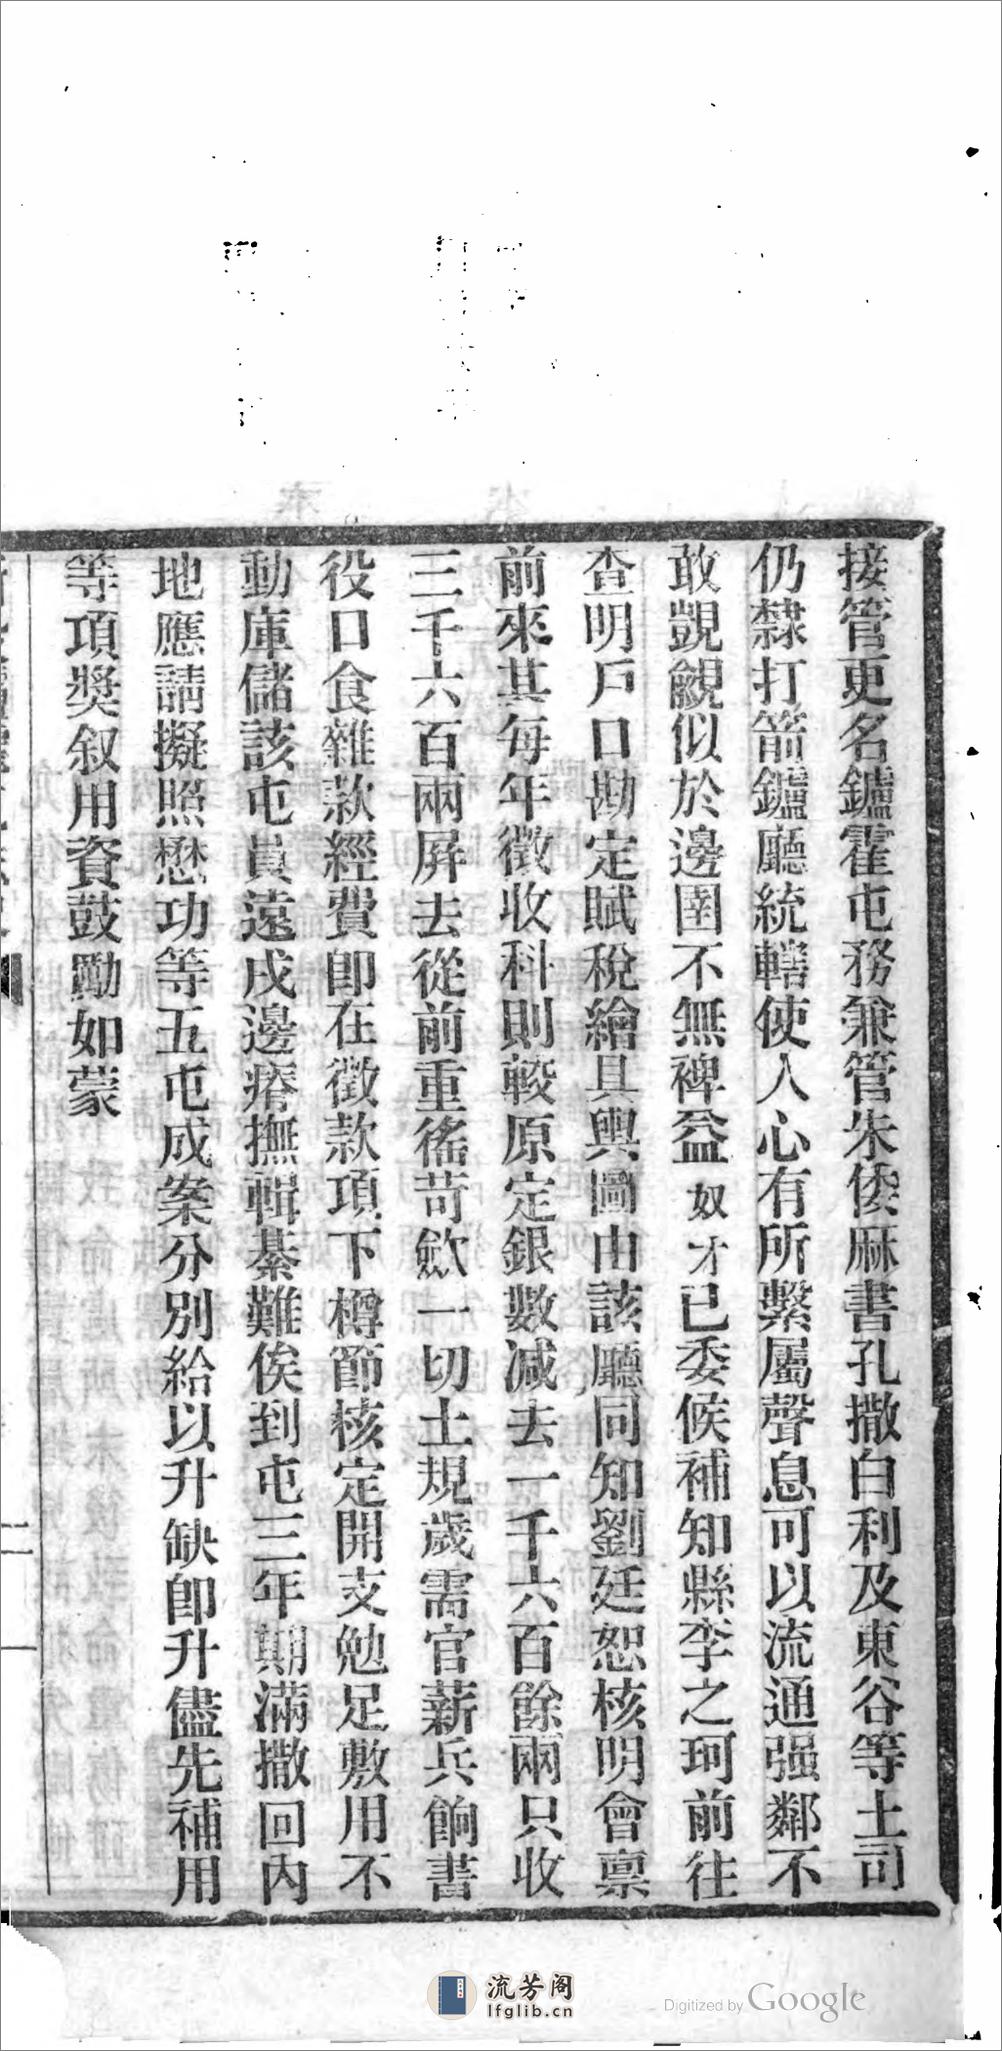 接管更名鑪霍屯務兼管朱倭麻書孔撒白利及東谷等土司
仍隸打箭鑪廳統轄使人心有所繫屬聲息可以流通强鄰不
敢覬覦似於邊圉不無裨益奴才已委候補知縣李之珂前往
查明戶口勘定賦稅繪具輿圖由該廳同知劉廷恕核明會稟
前來其每年徵收科則較原定銀數減去一千六百餘兩只收
三千六百兩屏去從前重徭苛歛一切土規歲需官薪兵餉書
役口食雜款經費卽在徵款項下樽節核定開支勉足敷用不
動庫儲該屯員遠戍邊瘠撫輯綦難俟到屯三年期滿撒回內
地應請擬照懋功等五屯成案分別給以升缺卽升儘先補用
等項獎叙用資鼓勵如蒙
流芳阁
lfglib.cn
Digitized by Google